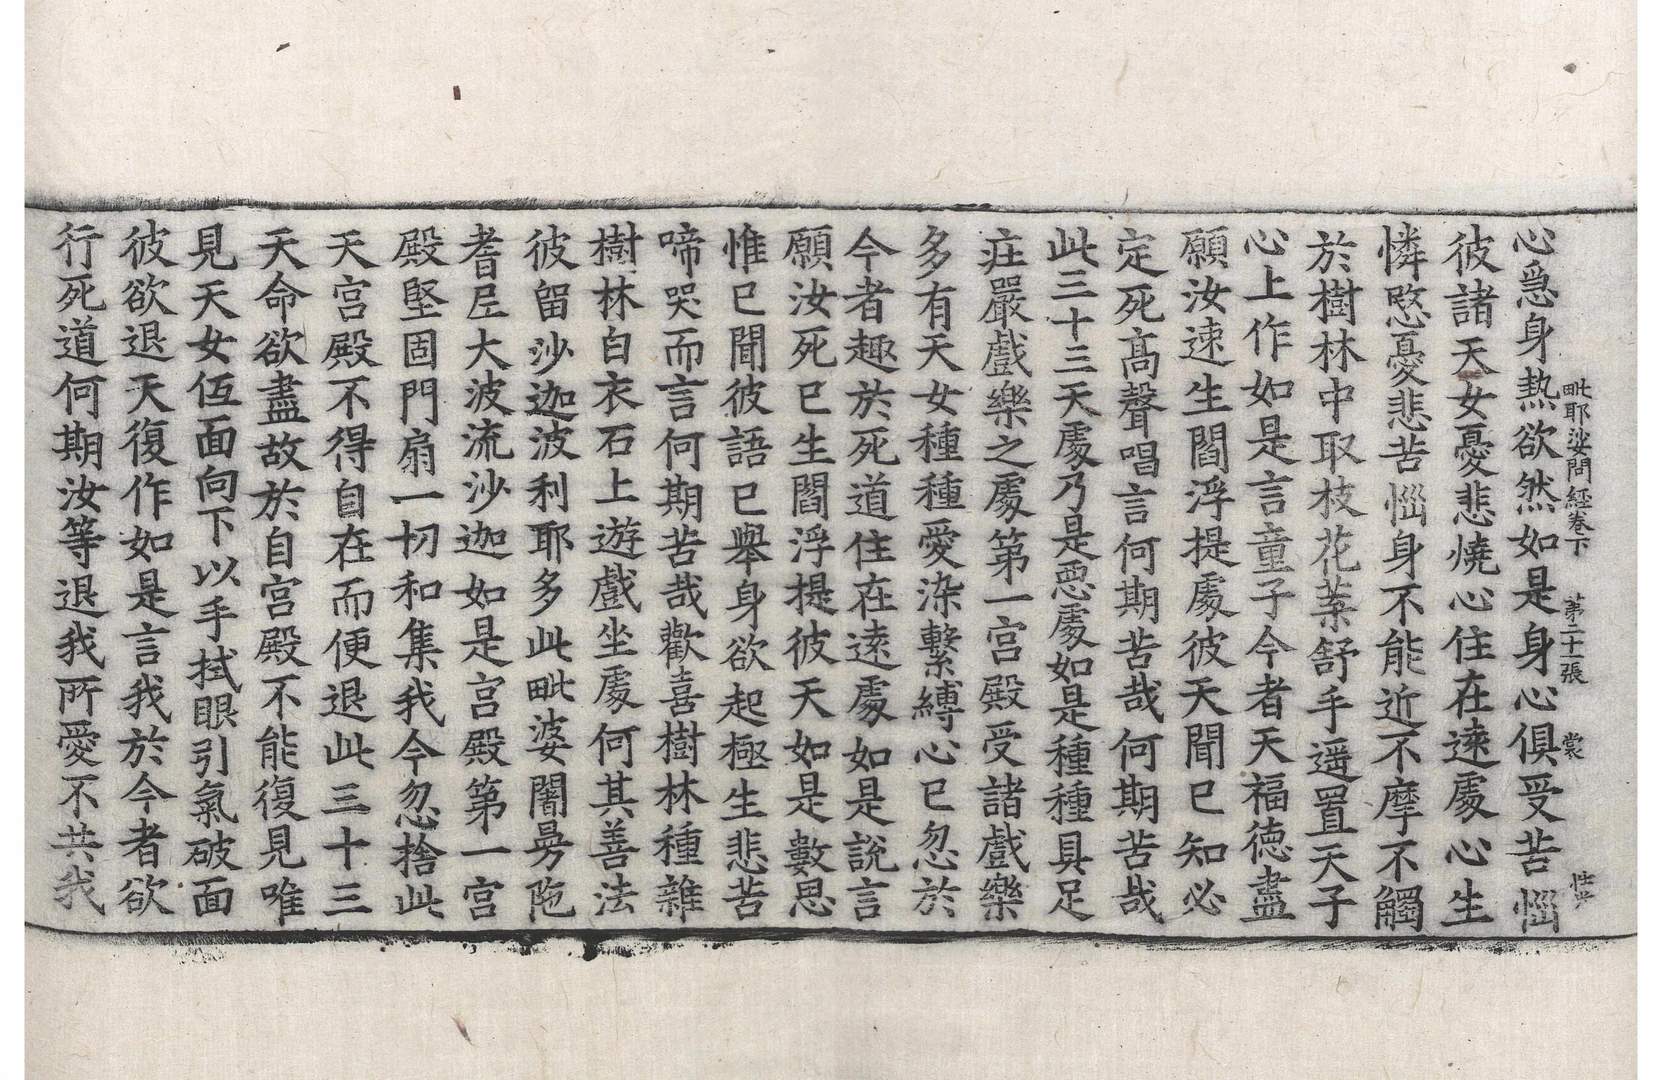 毗耶娑問經卷下 第二十一張 裳
心急身熱欲然如是身心俱受苦惱
彼諸天女憂悲燒心住在遠處心生
憐愍憂悲苦惱身不能近不摩不觸
於樹林中取枝花葉舒手遥置天子
心上作如是言童子今者天福德盡
願汝速生閻浮提處彼天聞已知必
定死高聲唱言何期苦哉何期苦哉
此三十三天處乃是惡處如是種種具足
莊嚴戲樂之處第一宮殿受諸戲樂
多有天女種種愛染繫縛心已忽於
今者趣於死道住在遠處如是說言
願汝死已生閻浮提彼天如是數思
惟已聞彼語已舉身欲起極生悲苦
啼哭而言何期苦哉歡喜樹林種雜
樹林白衣石上遊戲坐處何其善法
彼留沙迦波利耶多此毗婆闍旁陁
耆𡰱大波流沙迦如是宮殿第一宮
殿堅固門扇一切和集我今忽捨此
天宮殿不得自在而便退此三十三
天命欲盡故於自宮殿不能復見唯
見天女伍面向下以手拭眼引氣破面
彼欲退天復作如是言我於今者欲
行死道何期汝等退我所愛不共我